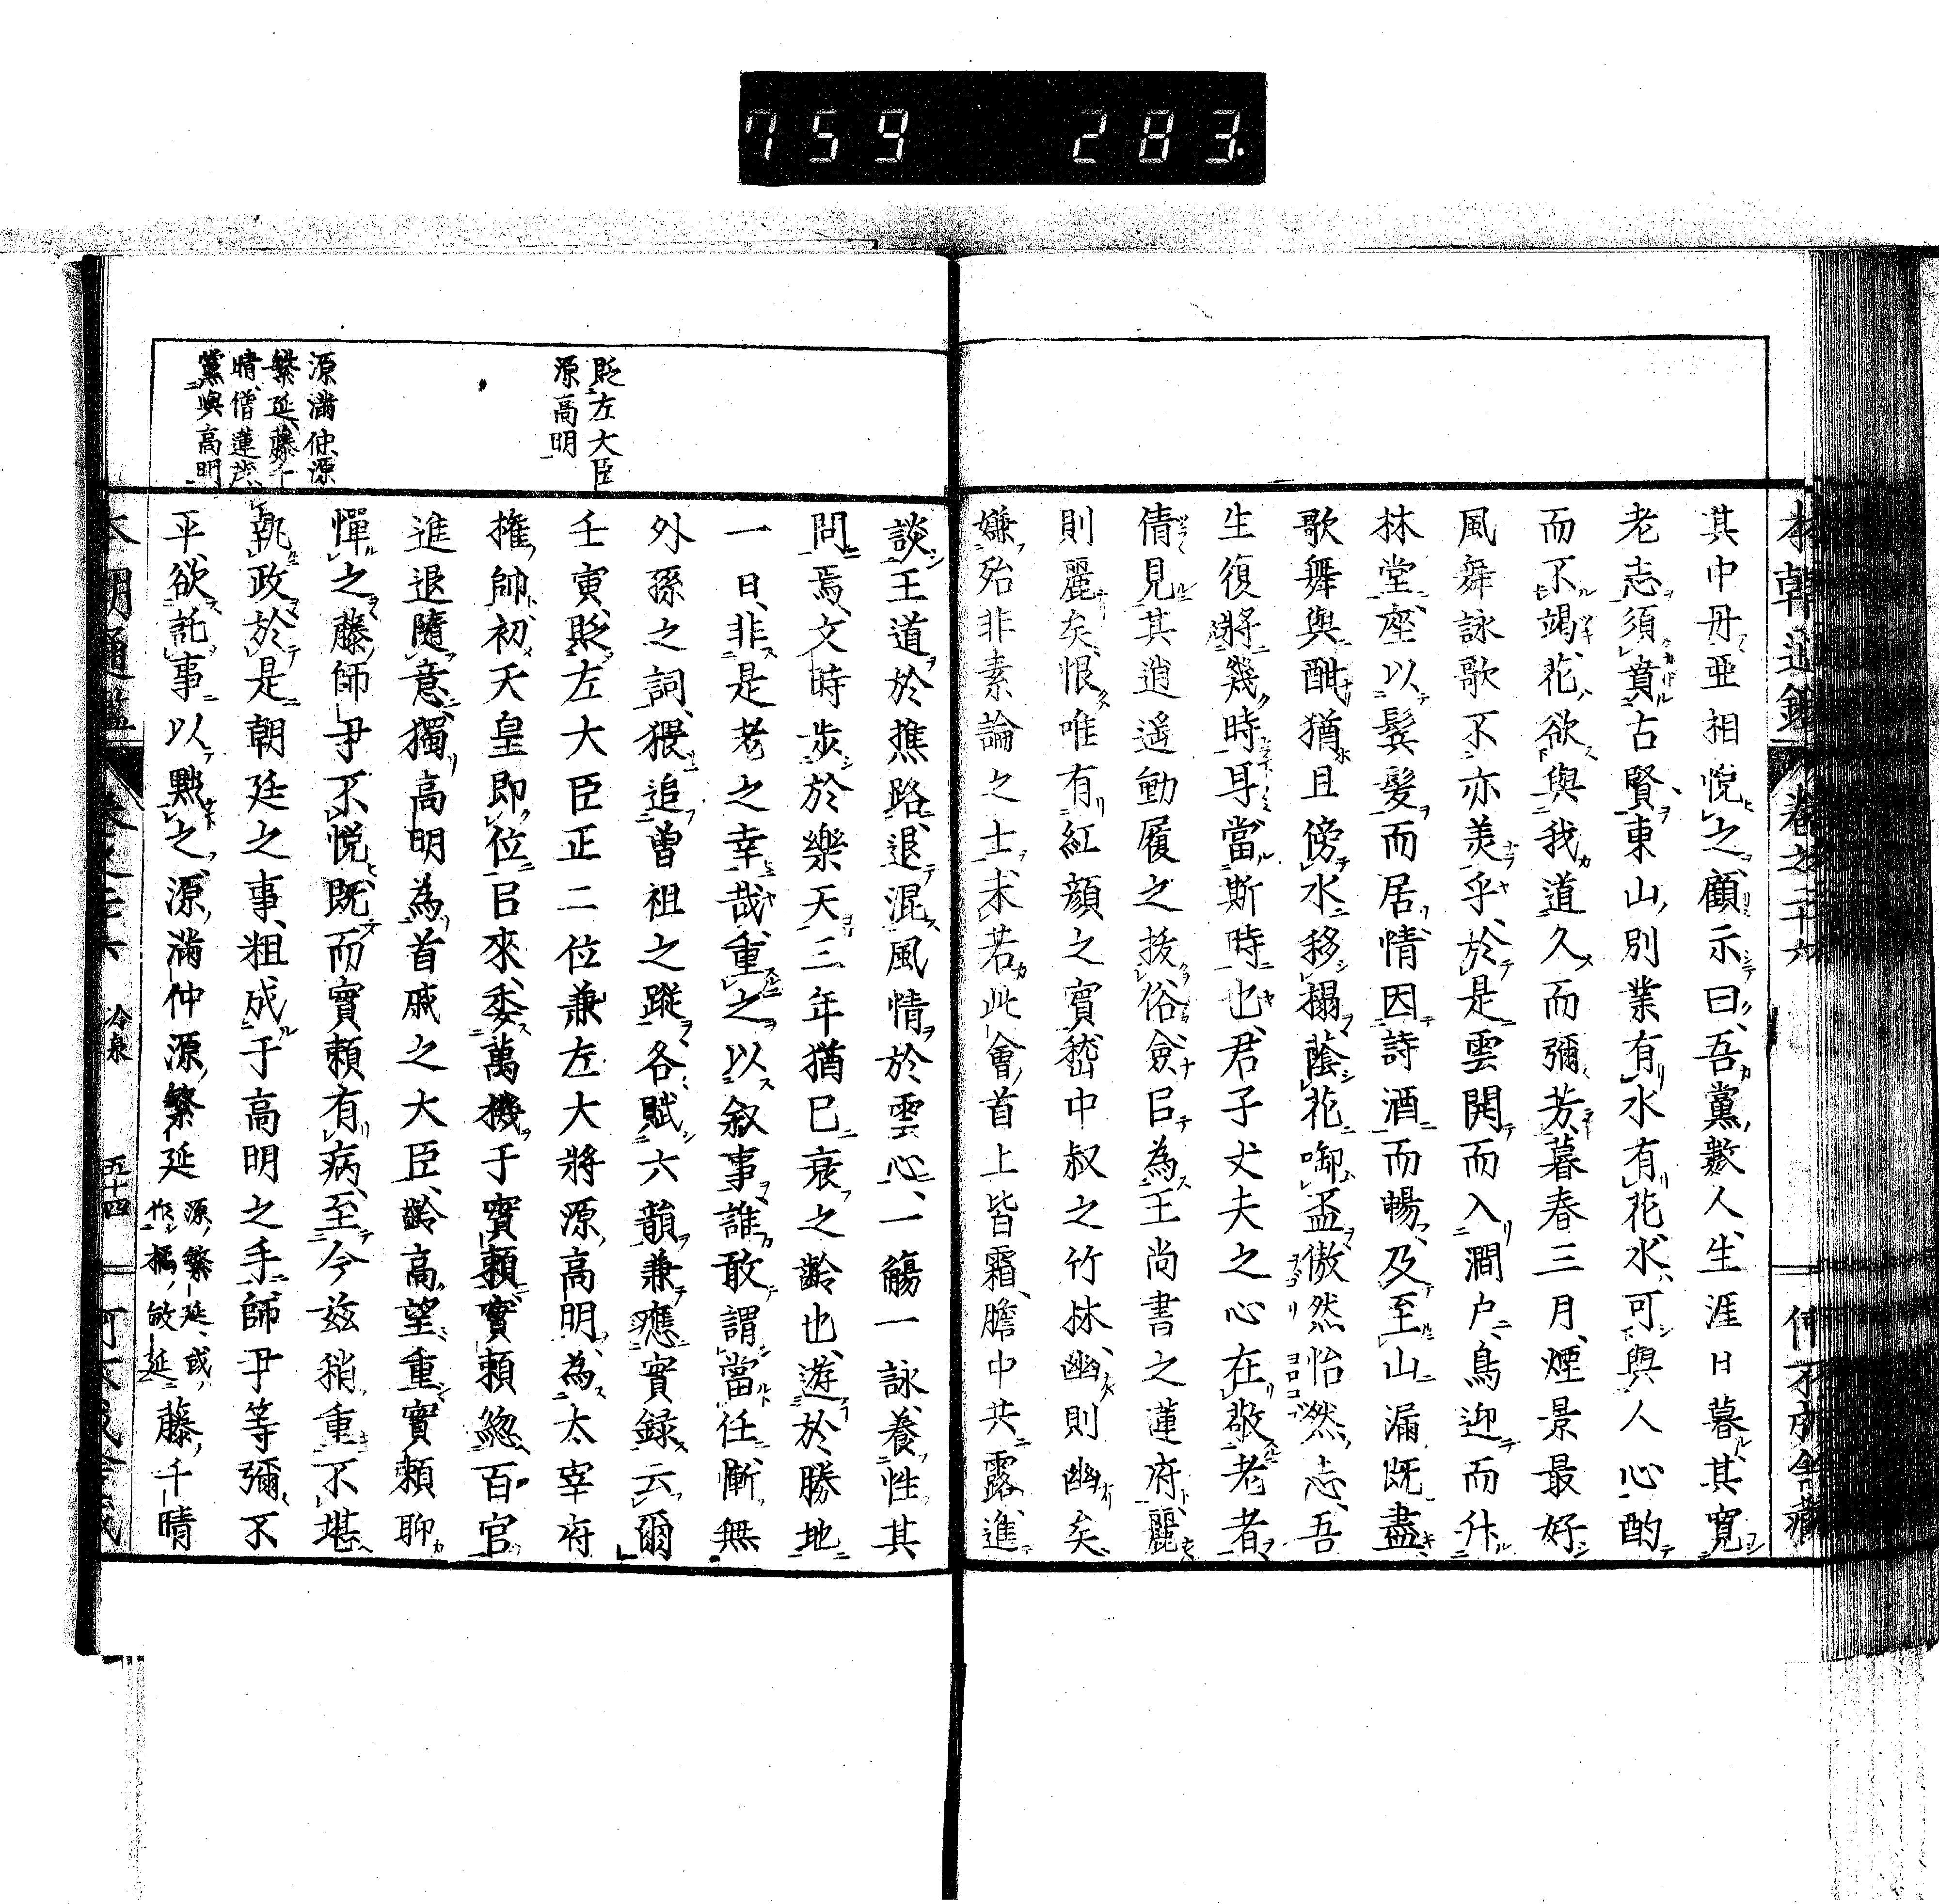 759 283.
其中毋亜相悅之顧示曰吾黨數人生涯日暮其寬
老志須賁古賢東山別業有水有花水可與人心酌
而不竭花欲與我道久而彌芳暮春三月煙景最好
風舞詠歌不亦美乎於是雲開而入澗戶鳥迎而升
林堂座以鬢髮而居情因詩酒而暢及至山漏既盡
歌舞與酣猶且傍水移榻蔭花啣盃傲然怡然忘吾
生復將幾時耳當斯時也君子丈夫之心在敬老者
倩見其逍遥動履之拔俗僉曰為王尚書之蓮府麗
則麗矣恨唯有紅顔之賓嵆中叔之竹林幽則幽矣
嫌殆非素論之士未若此會首上皆霜膽中共露進
貶左大臣
源高明
源滿仲源
繁延藤千
晴僧蓮茂
黨與高明
談王道於樵路退混風情於雲心一觴一詠養性其
問焉文時步於樂天三年猶已衰之齡也遊於勝地
一日非是老之幸哉重之以叙事誰敢謂當任慚無
外孫之詞猥追曽祖之蹤各賦六韻兼應實録云爾
壬寅貶左大臣正二位兼左大將源高明為太宰府
權帥初天皇即位以來委萬機于實賴實賴總百官
進退隨意獨高明為首戚之大臣齡高望重實賴聊
憚之藤師尹不悅既而實賴有病至今茲稍重不堪
執政於是朝廷之事粗成于高明之手師尹等彌不
平欲託事以黜之源滿仲源繁延源繁延或作橘敏延藤千晴
本朝通鑑 卷之二十六 冷泉 五十四